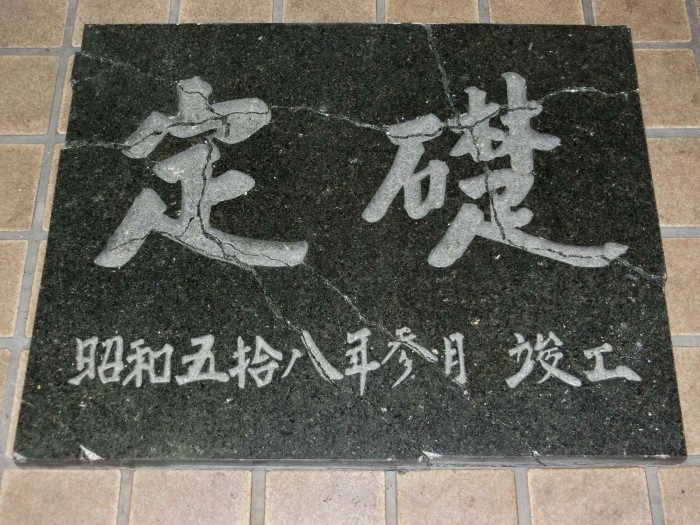 定礎
昭和五拾八年参月 竣工